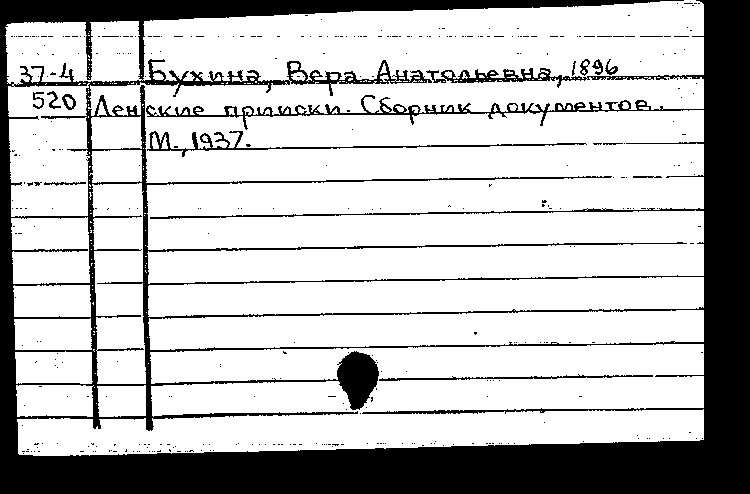 37-4 Бухина, Вера Анатольевна, 1896
520 Ленские прииски. Сборник документов.
М., 1937.